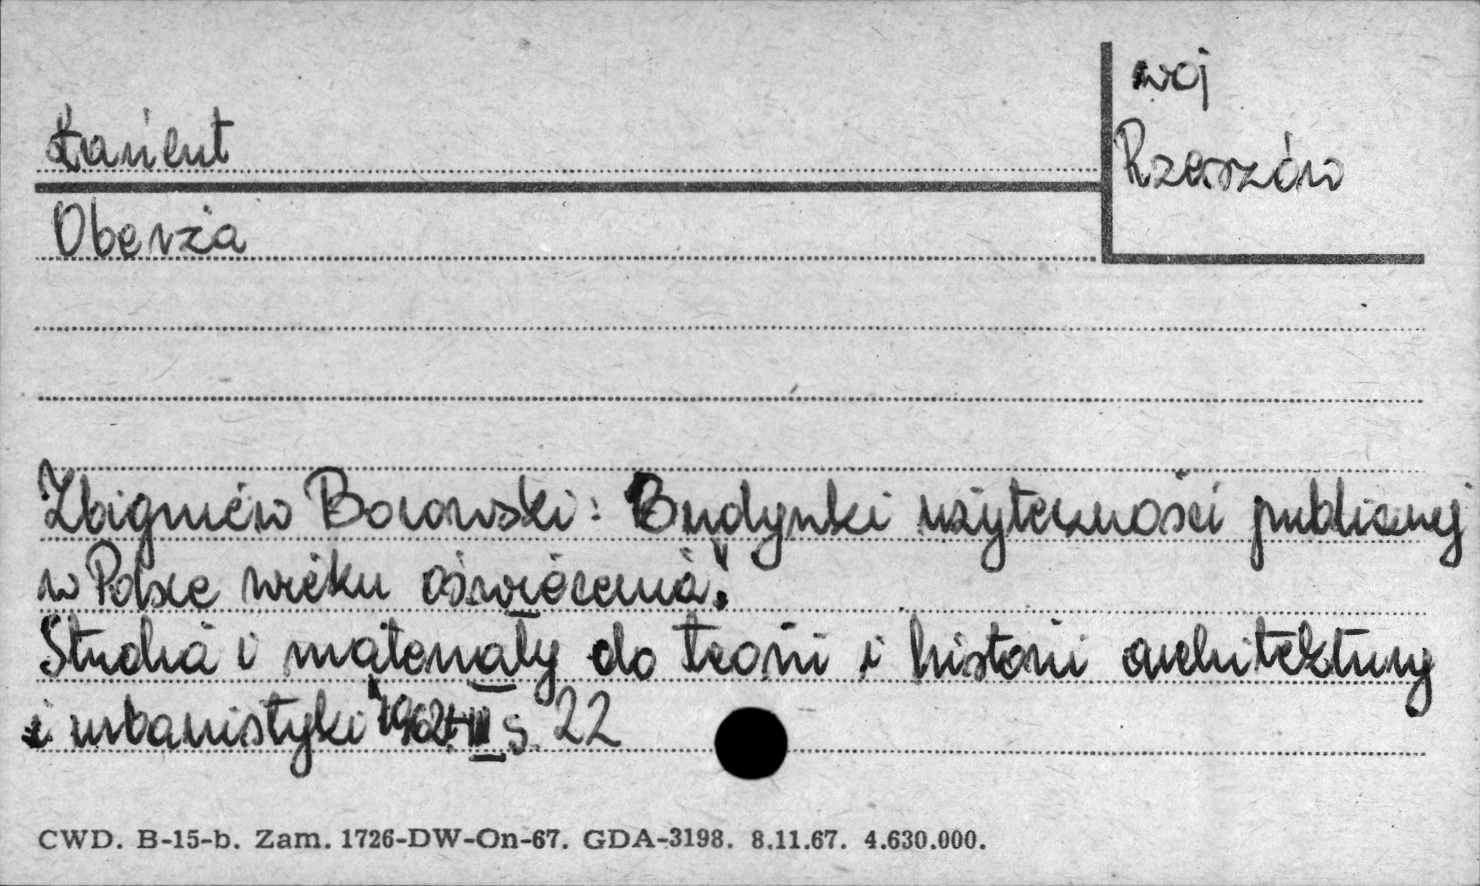 woj
Łańcut
Rzeszów
Oberża
Zbigniew Borowski: Budynki użyteczności publicznej
w Polsce wieku oświecenia.
Studia i materiały do teorii i historii architektury
i urbanistyki 1962 t. III s. 22
CWD. B-15-b. Zam. 1726-DW-On-67. GDA-3198. 8.11.67. 4.630.000.